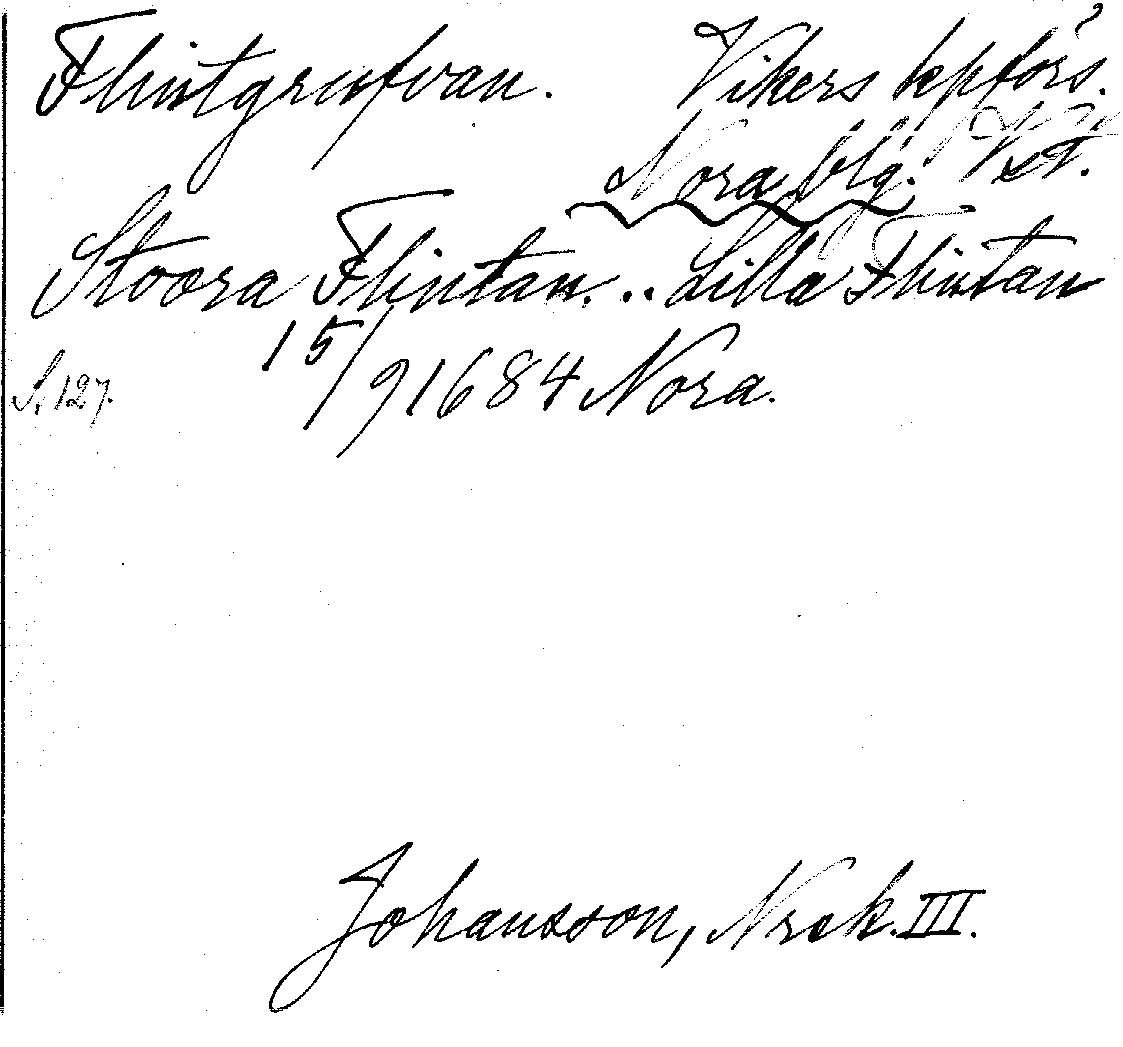 Flintgrufvan. Vikers kpförs.
Nora blg. Vstm.
Stoora Flintan... Lilla Flintan
15/9 1684 Nora.
S. 127.
Johansson, Nrek. III.